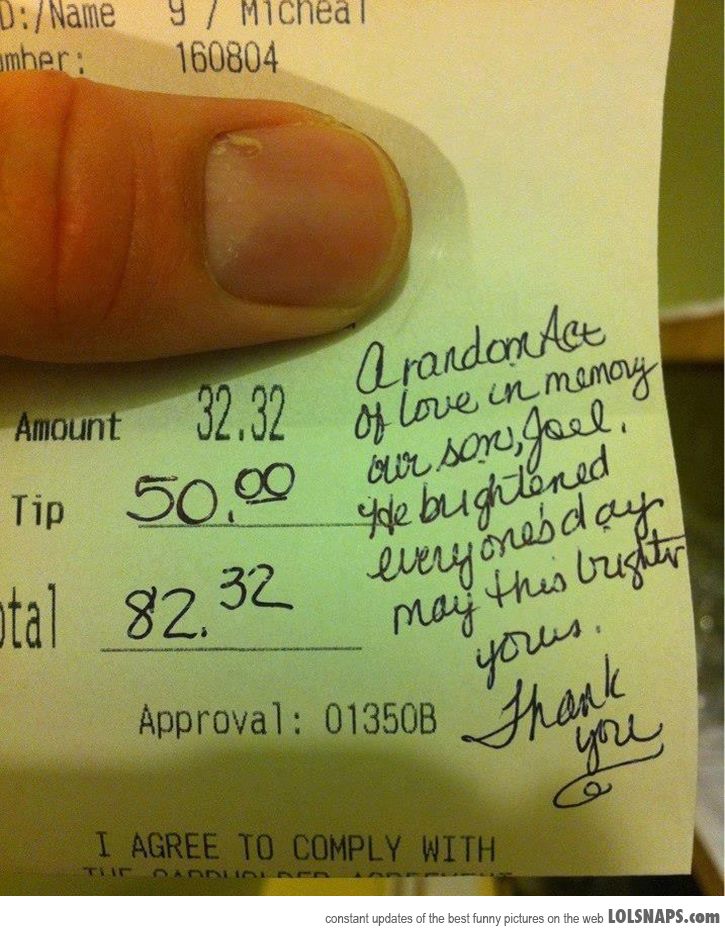 D:/Name 9 / Micheal
umber: 160804
Amount 32.32
Tip 50.00
otal 82.32
A random Act
of love in memory
our son, Joel.
He brightened
everyone's day
may this brighten
yours.
Thank
you
Approval: 01350B
I AGREE TO COMPLY WITH
THE CARDHOLDER AGREEMENT
constant updates of the best funny pictures on the web LOLSNAPS.com